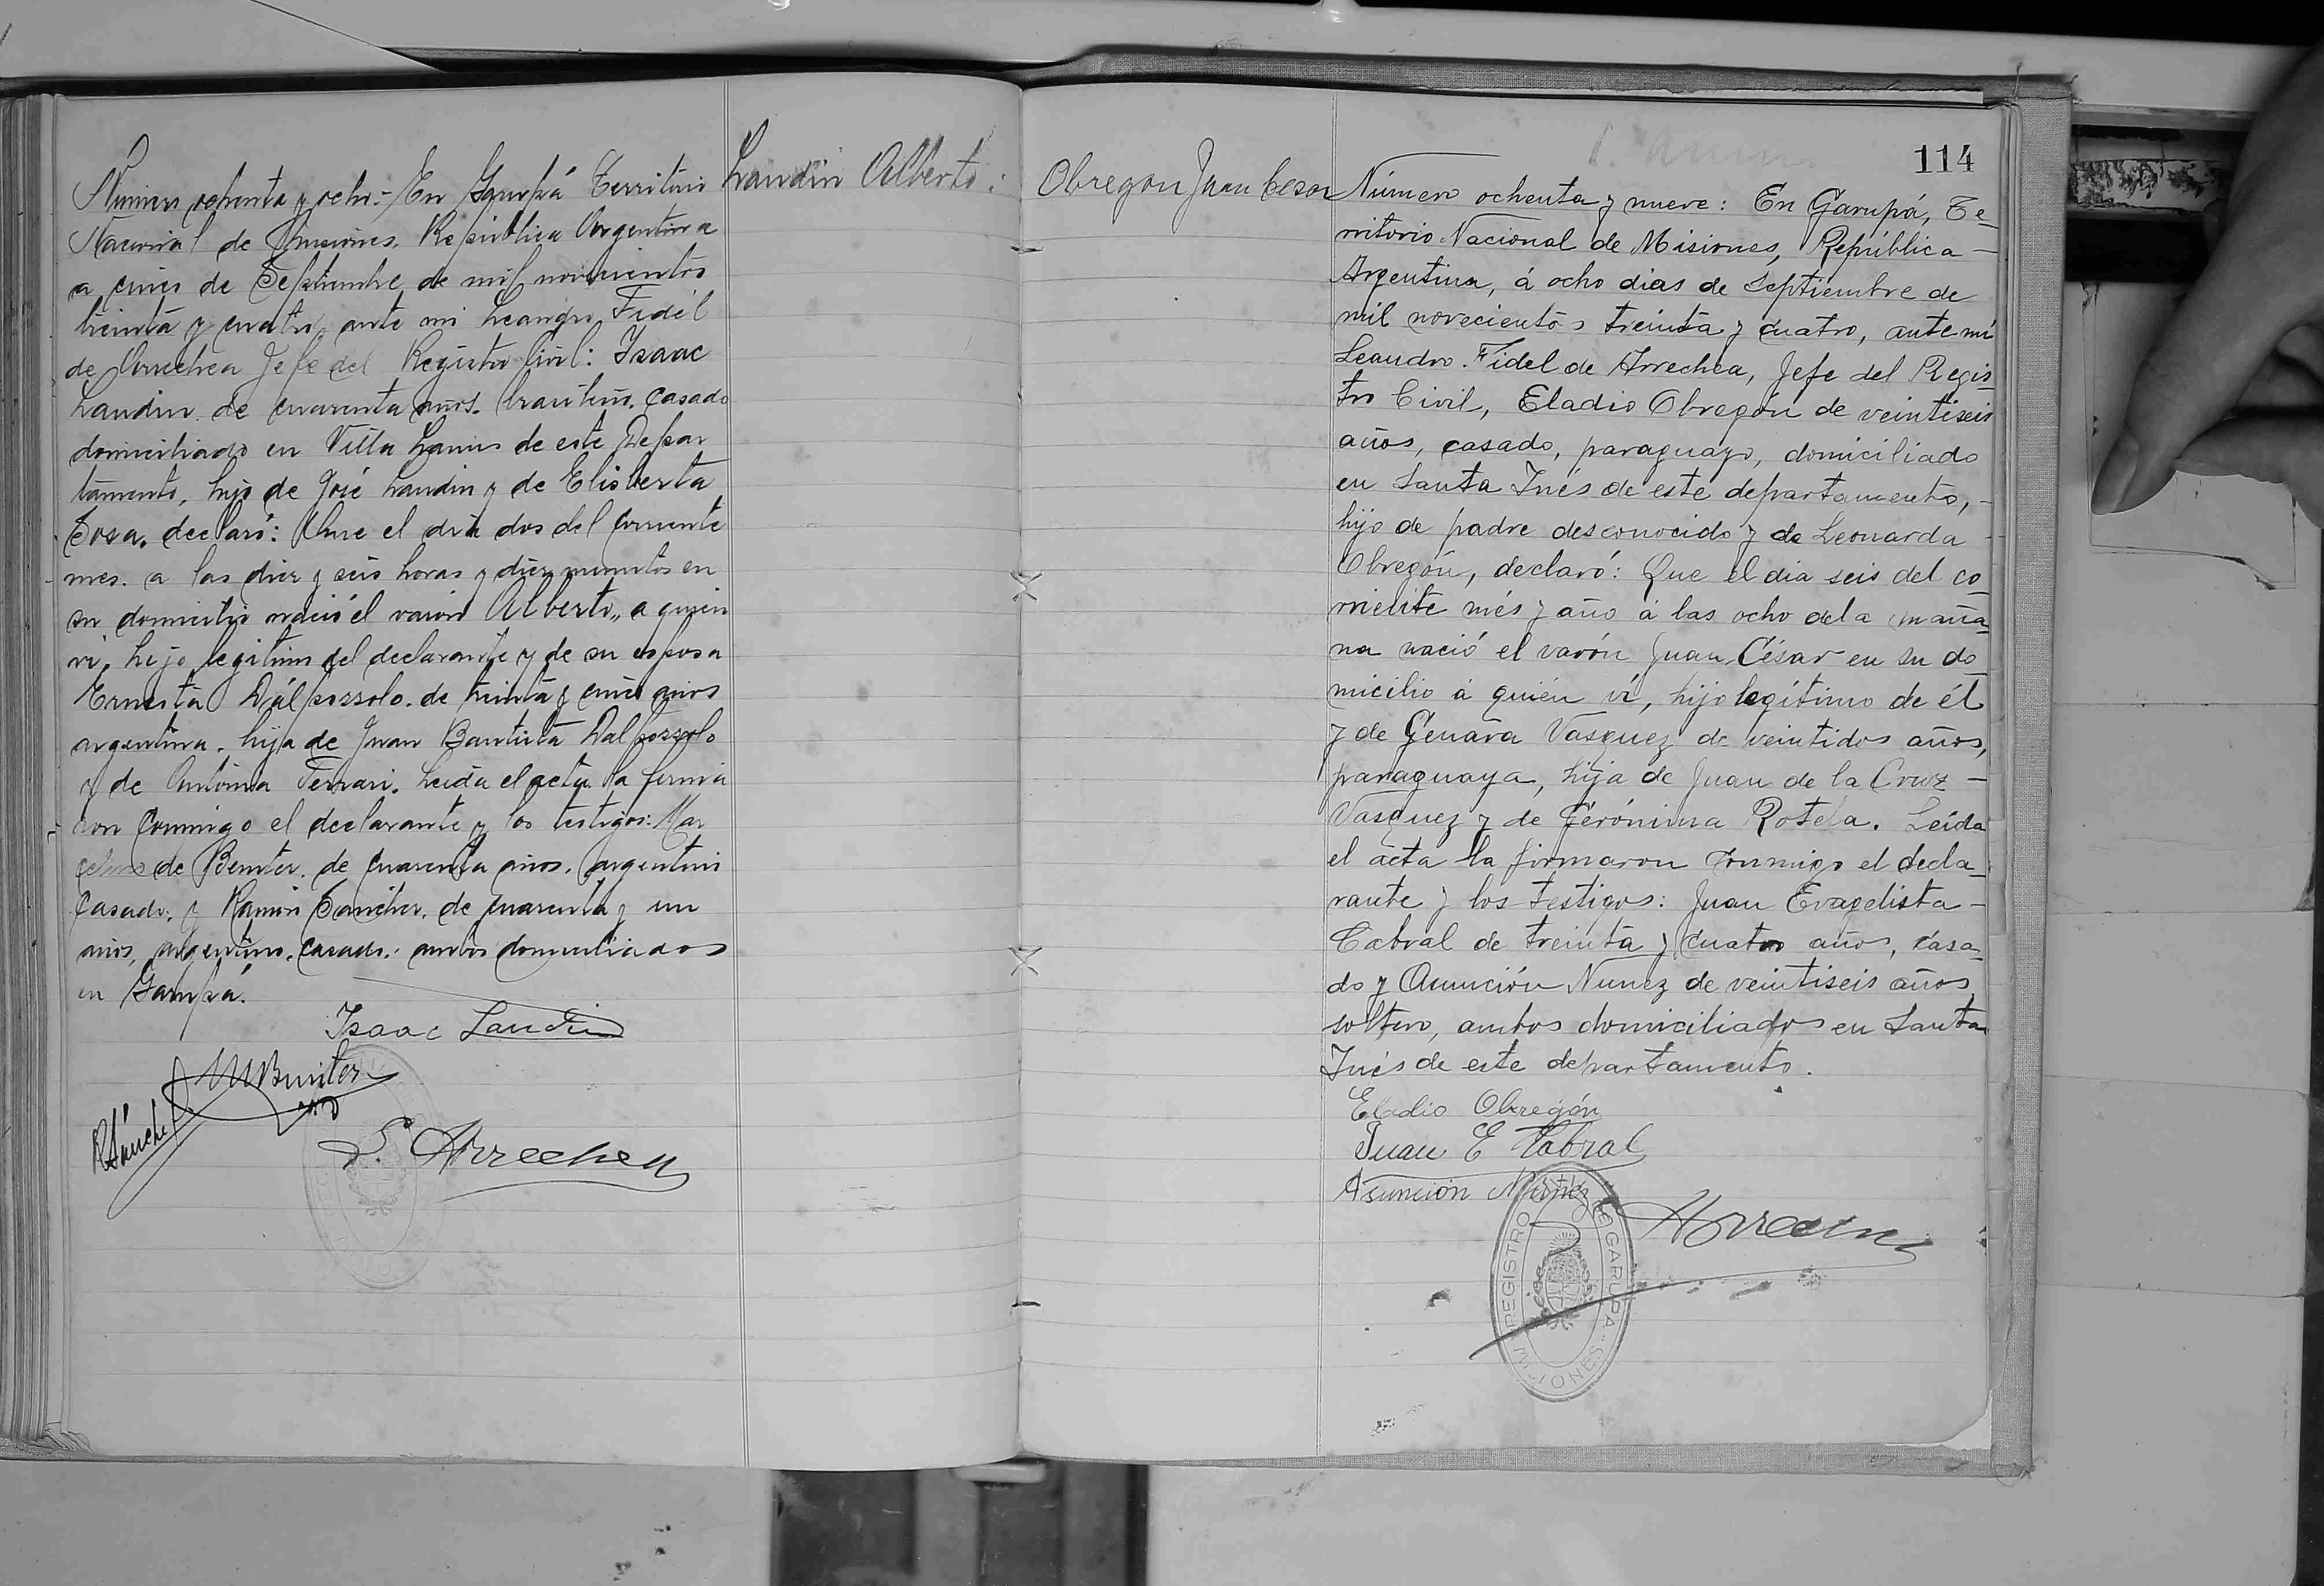 Landin Alberto:
Número ochenta y ocho:- En Garupá Territorio
Nacional de Misiones. República Argentina
a cinco de Septiembre de mil novecientos
treinta y cuatro, ante mi Leandro Fidel
de Arrechea Jefe del Registro Civil: Isaac
Landin de cuarenta años. brasileño. casado
domiciliado en Villa Lanus de este Depar
tamento, hijo de José Landin y de Elisberta
Sosa. declaró: Que el día dos del corriente
mes. a las diez y seis horas y diez minutos en
su domicilio nació el varón Alberto,, a quien
vi, hijo legitimo del declarante y de su esposa
Ernesta Dalpozzolo. de treinta y cinco años
argentina. hija de Juan Bautista Dalpozzolo
y de Antonia Ferrari. Leida el acta la firma
ron conmigo el declarante y los testigos: Mar
celino de Benitez. de cuarenta años. argentino
casado. y Ramón Sanchez. de cuarenta y un
años, argentino. casado. ambos domiciliados
en Garupá.
Isaac Landin
M Benitez
RSánchez
L. Arrechea
114
Obregon Juan Cesar
Número ochenta y nueve: En Garupá, Te-
rritorio Nacional de Misiones, República -
Argentina, á ocho dias de Septiembre de
mil novecientos treinta y cuatro, ante mi
Leandro Fidel de Arrechea, Jefe del Regis
tro Civil, Eladio Obregón de veintiseis
años, casado, paraguayo, domiciliado
en Santa Inés de este departamento, -
hijo de padre desconocido y de Leonarda -
Obregón, declaró: Que el dia seis del co-
rriente més y año á las ocho de la maña-
na nació el varón Juan César en su do
micilio á quién vi, hijo legítimo de él
y de Genara Vasquez de veintidos años,
paraguaya, hija de Juan de la Cruz -
Vasquez y de Gerónima Rotela. Leída
el acta la firmaron conmigo el decla-
rante y los testigos: Juan Evagelista -
Cabral de treinta y cuatro años, casa-
do y Asunción Nunez de veintiseis años
soltero, ambos domiciliados en Santa
Inés de este departamento.
Eladio Obregón
Juan E Cabral
Asunción Nuñez
Arrechea
REGISTRO DE GARUPA MISIONES